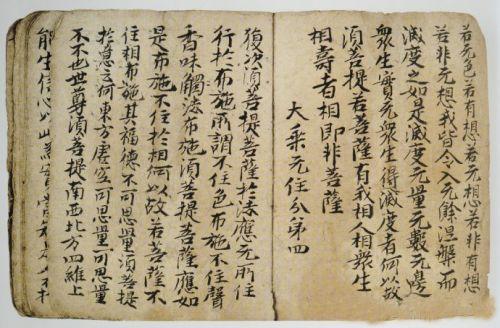 若无色若有想若无想若非有想
若非无想我皆令入无餘涅槃而
滅度之如是滅度无量无數无邊
衆生實无衆生得滅度者何以故
須菩提若菩薩有我相人相衆生
相壽者相即非菩薩
大乗无住分第四
復次須菩提菩薩於法應无所住
行於布施所謂不住色布施不住聲
香味觸法布施須菩提菩薩應如
是布施不住於相何以故若菩薩不
住相布施其福德不可思量須菩提
於意云何東方虚空可思量可思量
不不也世尊須菩提南西北方四維上
能生信心以此為實當知是人不